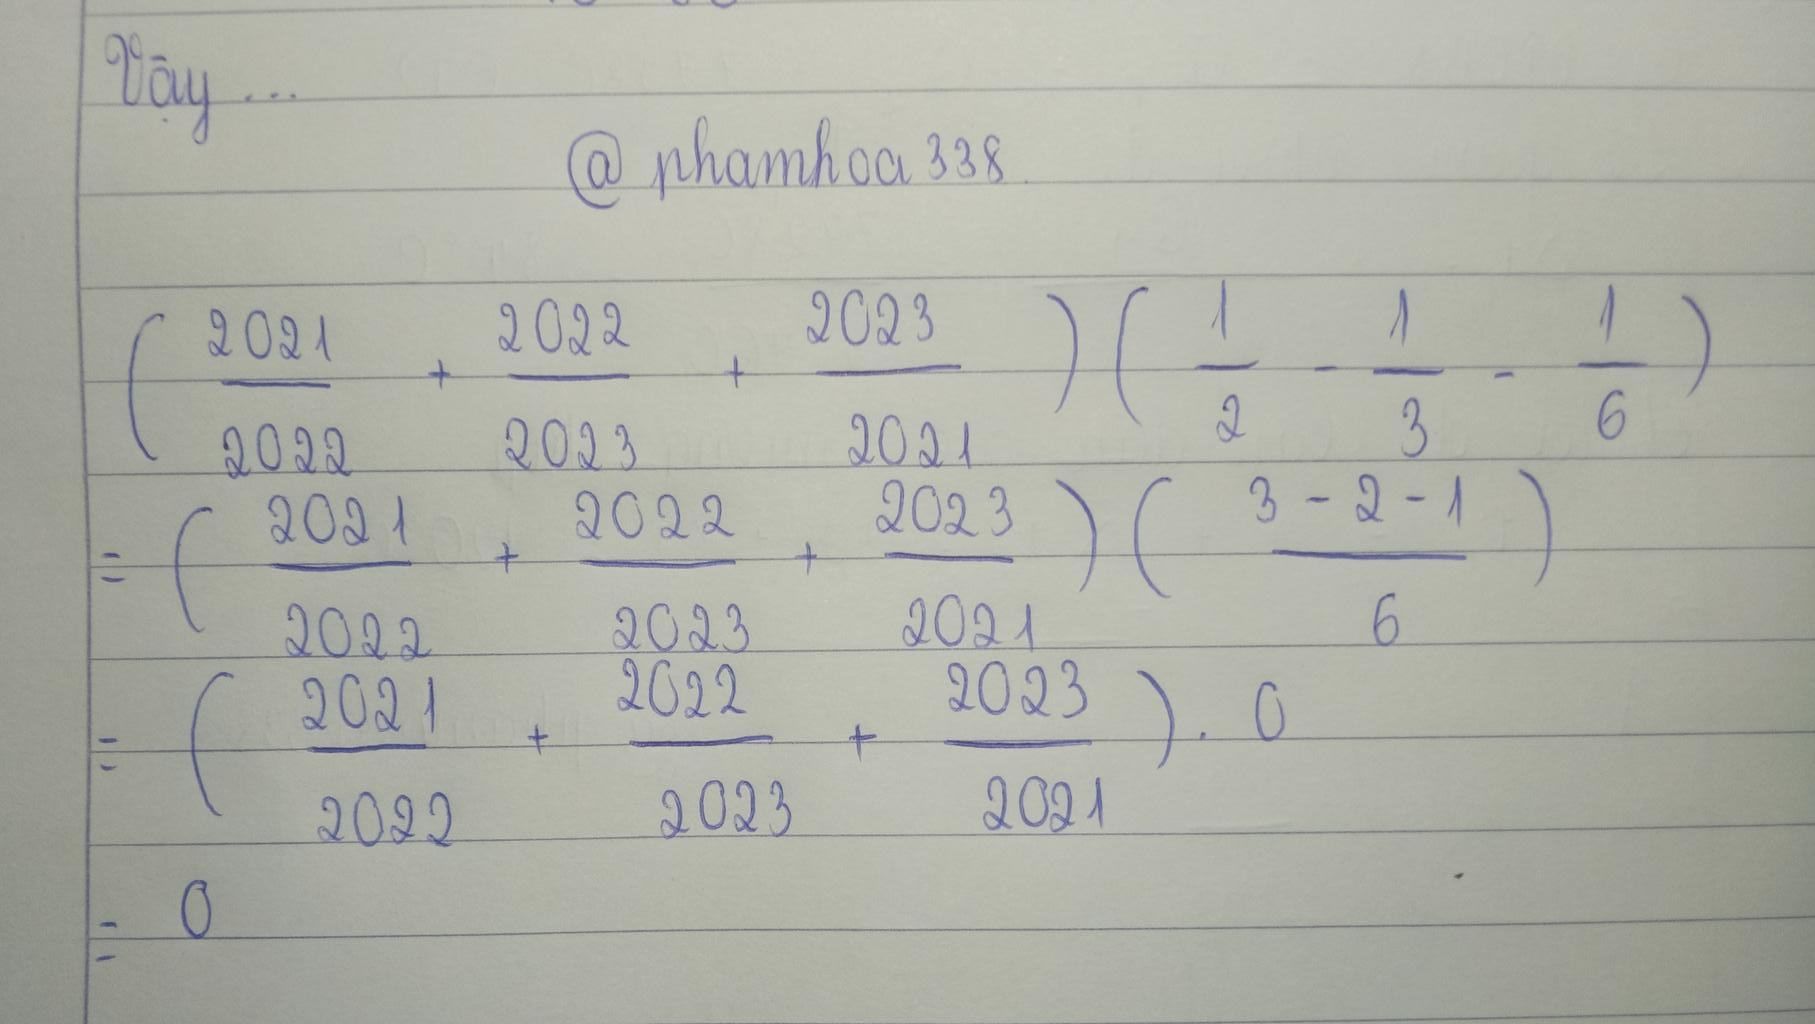 Vậy ...
@ phamhoa 338
( 2021/2022 + 2022/2023 + 2023/2021 ) ( 1/2 - 1/3 - 1/6 )
= ( 2021/2022 + 2022/2023 + 2023/2021 ) ( 3 - 2 - 1 / 6 )
= ( 2021/2022 + 2022/2023 + 2023/2021 ) . 0
= 0